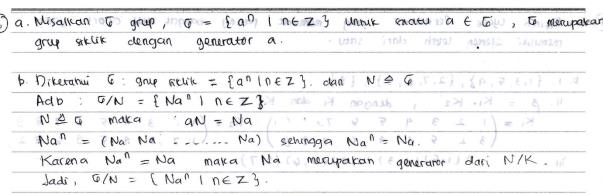 a. Misalkan G grup, G = {aⁿ | n∈Z} untuk suatu a ∈ G, G merupakan
grup siklik dengan generator a.
b. Diketahui G : grup siklik = {aⁿ | n∈Z}. dan N ⊴ G
Adb : G/N = {Naⁿ | n∈Z}
N ⊴ G maka aN = Na
Naⁿ = (Na Na ....... Na) sehingga Naⁿ = Na.
Karena Naⁿ = Na maka Na merupakan generator dari N/K.
Jadi, G/N = {Naⁿ | n∈Z}.